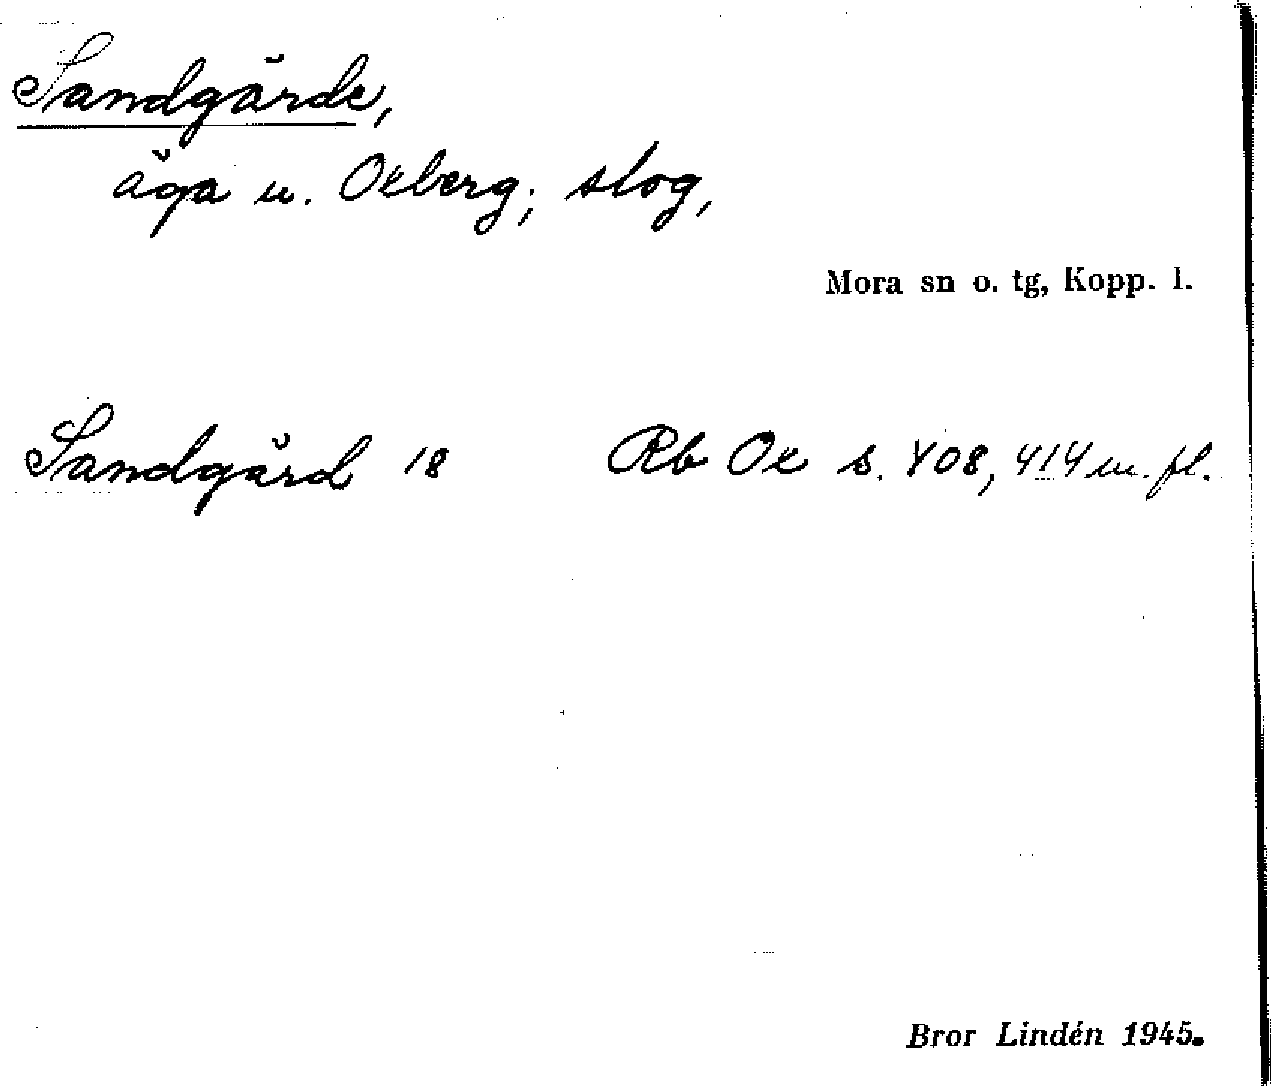 Sandgärde,
äga u. Oxberg; slog,
Mora sn o. tg, Kopp. l.
Sandgärd 18 Rb Ox s. 408, 414 m. fl.
Bror Lindén 1945.